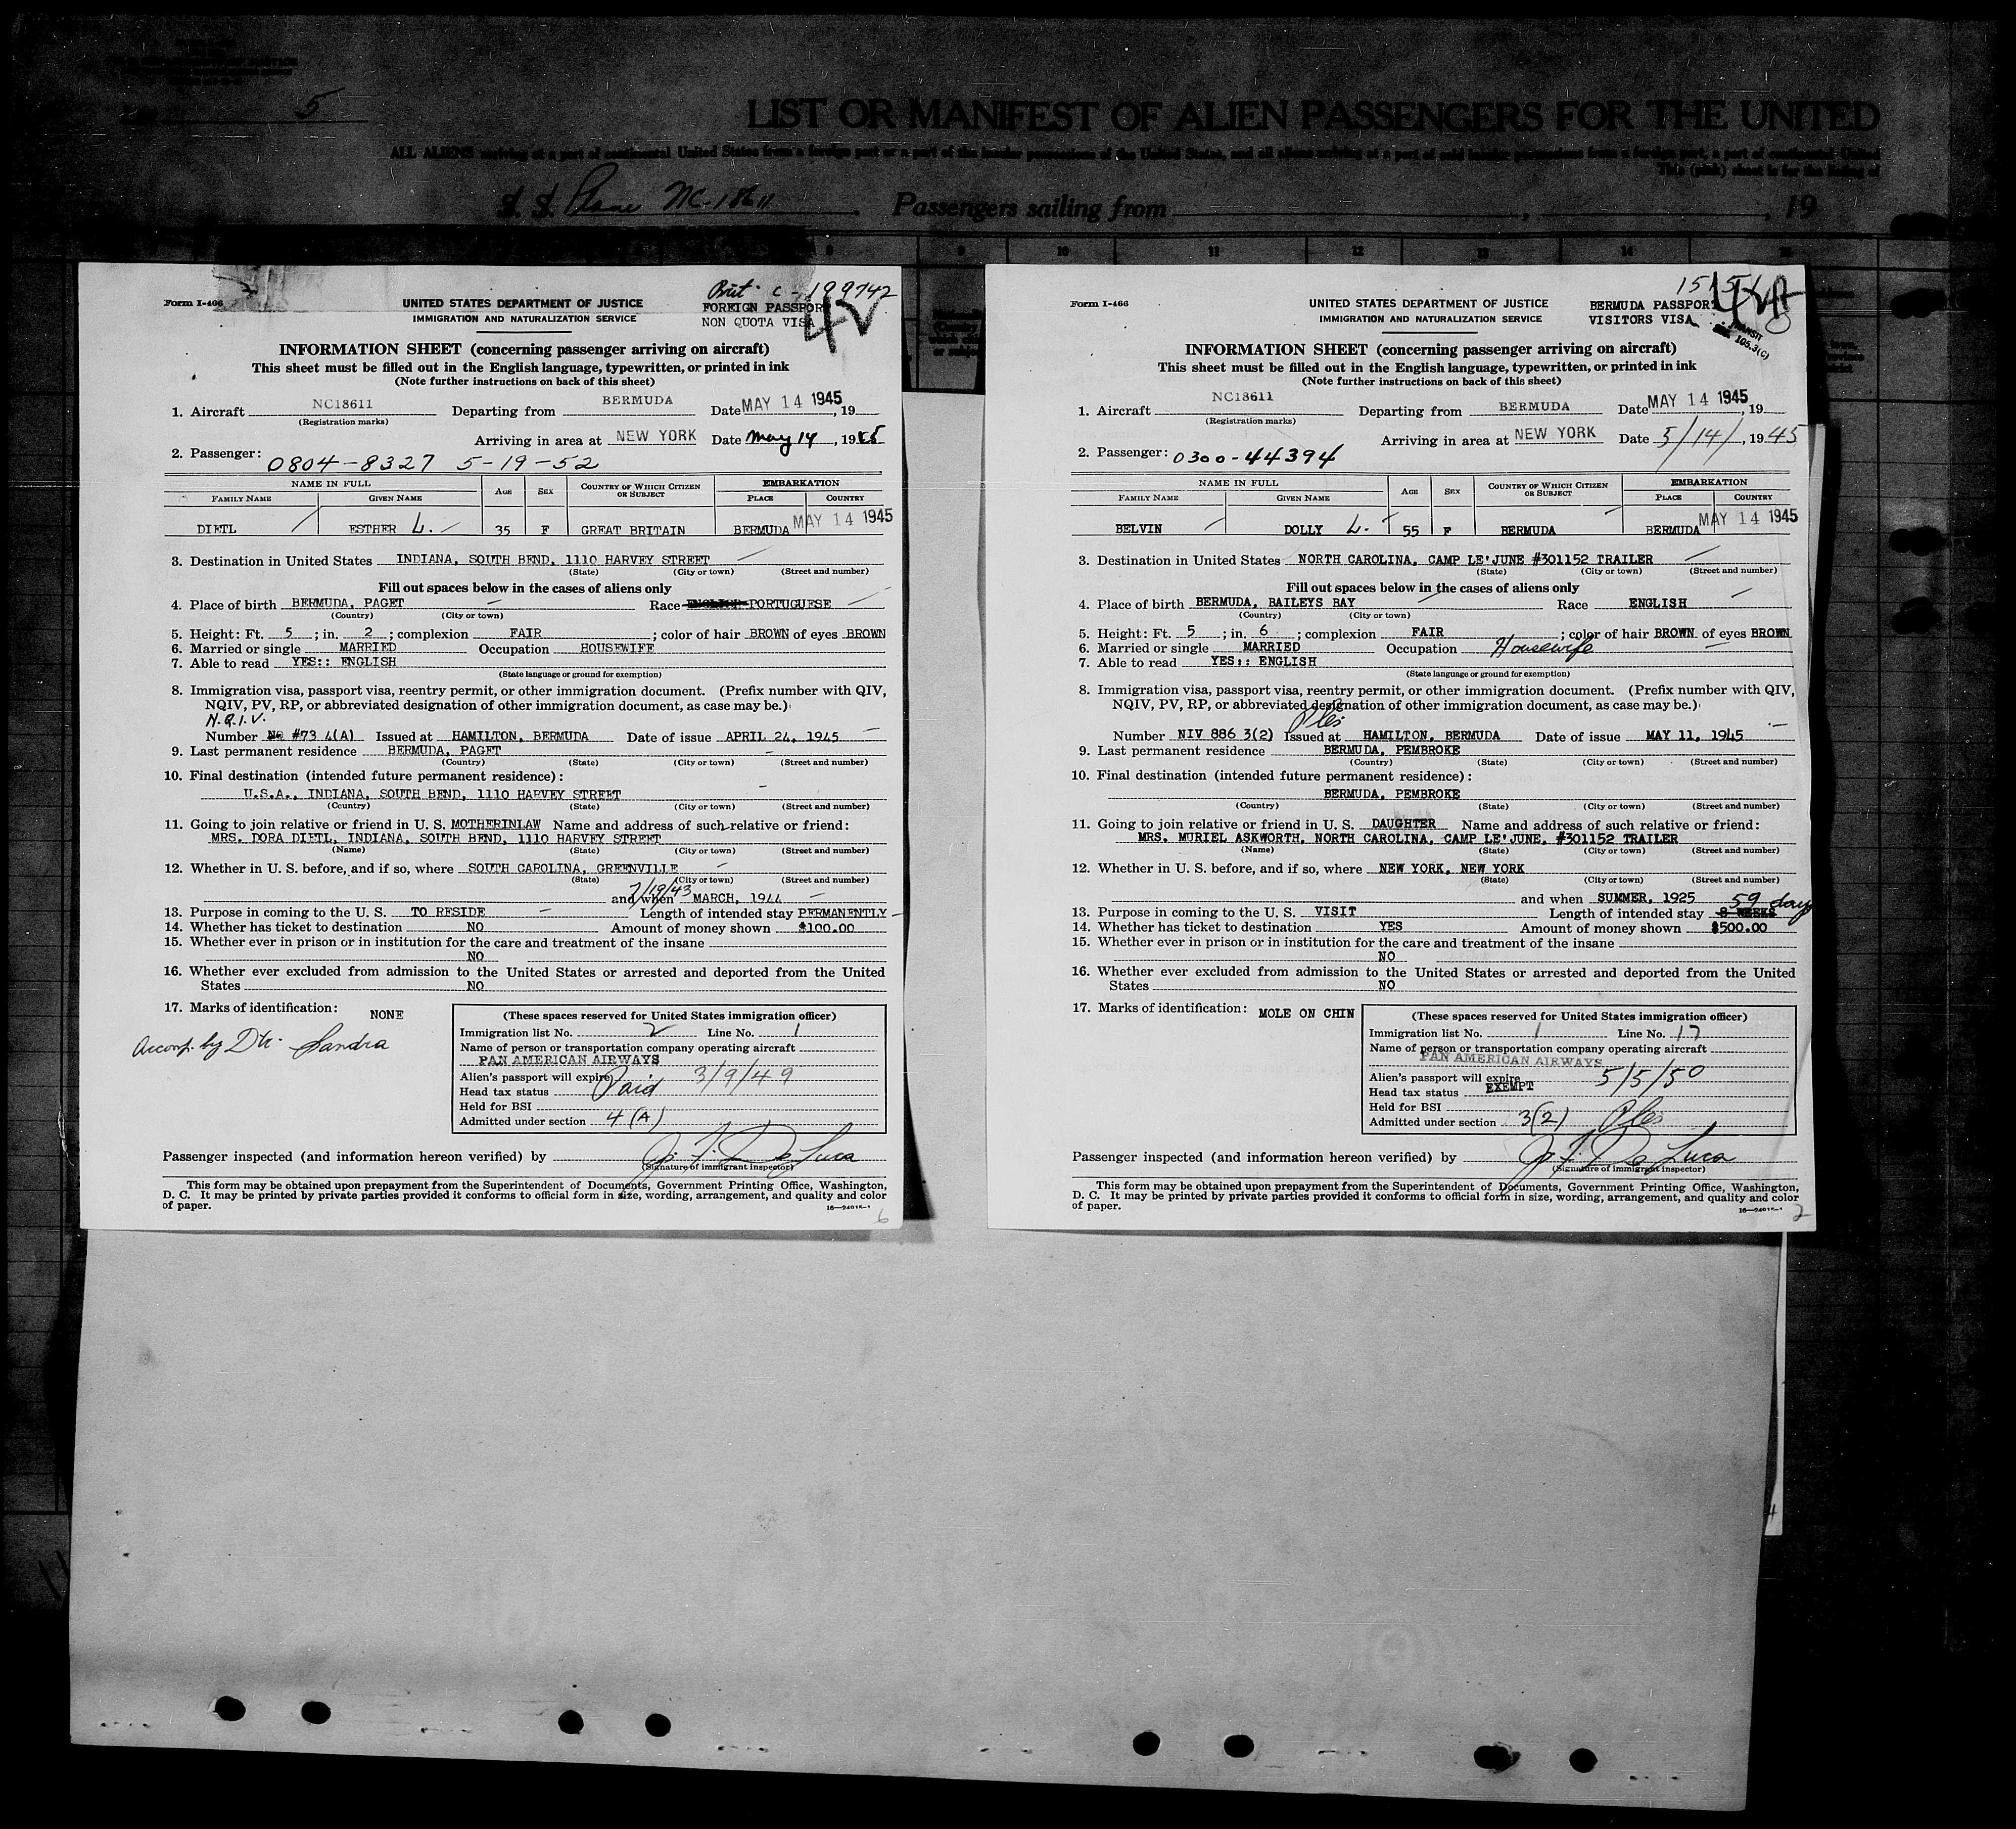 5
LIST OR MANIFEST OF ALIEN PASSENGERS FOR THE UNITED
ALL ALIENS arriving at a port of continental United States from a foreign port or a port of the insular possessions of the United States, and all aliens arriving at a port of said insular possessions from a foreign port, a port of continental United
This (pink) sheet is for the listing of
S. S. Plane NC-18611 Passengers sailing from , , 19
8 9 10 11 12 13 14 15
Brit. C-199742
Form I-466
UNITED STATES DEPARTMENT OF JUSTICE
IMMIGRATION AND NATURALIZATION SERVICE
FOREIGN PASSPORT
NON QUOTA VISA
4V
INFORMATION SHEET (concerning passenger arriving on aircraft)
This sheet must be filled out in the English language, typewritten, or printed in ink
(Note further instructions on back of this sheet)
1. Aircraft NC18611 Departing from BERMUDA Date MAY 14 1945, 19
(Registration marks)
Arriving in area at NEW YORK Date May 14, 1945
2. Passenger: 0804-8327 5-19-52
NAME IN FULL AGE SEX COUNTRY OF WHICH CITIZEN OR SUBJECT EMBARKATION
FAMILY NAME GIVEN NAME PLACE COUNTRY
DIETL ESTHER L. 35 F GREAT BRITAIN BERMUDA MAY 14 1945
3. Destination in United States INDIANA, SOUTH BEND, 1110 HARVEY STREET
(State) (City or town) (Street and number)
Fill out spaces below in the cases of aliens only
4. Place of birth BERMUDA, PAGET Race ENGLISH PORTUGUESE
(Country) (City or town)
5. Height: Ft. 5 ; in. 2 ; complexion FAIR ; color of hair BROWN of eyes BROWN
6. Married or single MARRIED Occupation HOUSEWIFE
7. Able to read YES:: ENGLISH
(State language or ground for exemption)
8. Immigration visa, passport visa, reentry permit, or other immigration document. (Prefix number with QIV,
NQIV, PV, RP, or abbreviated designation of other immigration document, as case may be.)
N.Q.I.V.
Number NQ #73 4(A) Issued at HAMILTON, BERMUDA Date of issue APRIL 24, 1945
9. Last permanent residence BERMUDA, PAGET
(Country) (State) (City or town) (Street and number)
10. Final destination (intended future permanent residence):
U.S.A., INDIANA, SOUTH BEND, 1110 HARVEY STREET
(Country) (State) (City or town) (Street and number)
11. Going to join relative or friend in U. S. MOTHERINLAW Name and address of such relative or friend:
MRS. DORA DIETL, INDIANA, SOUTH BEND, 1110 HARVEY STREET
(Name) (State) (City or town) (Street and number)
12. Whether in U. S. before, and if so, where SOUTH CAROLINA, GREENVILLE
(State) (City or town) (Street and number)
7/19/43
and when MARCH, 1944
13. Purpose in coming to the U. S. TO RESIDE Length of intended stay PERMANENTLY
14. Whether has ticket to destination NO Amount of money shown $100.00
15. Whether ever in prison or in institution for the care and treatment of the insane
NO
16. Whether ever excluded from admission to the United States or arrested and deported from the United
States NO
17. Marks of identification: NONE
Accomp. by Dtr. Sandra
(These spaces reserved for United States immigration officer)
Immigration list No. 2 Line No. 1
Name of person or transportation company operating aircraft
PAN AMERICAN AIRWAYS
Alien's passport will expire 3/9/49
Head tax status Paid
Held for BSI
Admitted under section 4(A)
Passenger inspected (and information hereon verified) by J. F. De Luca
(Signature of immigrant inspector)
This form may be obtained upon prepayment from the Superintendent of Documents, Government Printing Office, Washington,
D. C. It may be printed by private parties provided it conforms to official form in size, wording, arrangement, and quality and color
of paper.
6
Form I-466
UNITED STATES DEPARTMENT OF JUSTICE
IMMIGRATION AND NATURALIZATION SERVICE
BERMUDA PASSPORT
VISITORS VISA
TRANSIT
105.3(c)
INFORMATION SHEET (concerning passenger arriving on aircraft)
This sheet must be filled out in the English language, typewritten, or printed in ink
(Note further instructions on back of this sheet)
1. Aircraft NC18611 Departing from BERMUDA Date MAY 14 1945, 19
(Registration marks)
Arriving in area at NEW YORK Date 5/14/, 1945
2. Passenger: 0300-44394
NAME IN FULL AGE SEX COUNTRY OF WHICH CITIZEN OR SUBJECT EMBARKATION
FAMILY NAME GIVEN NAME PLACE COUNTRY
BELVIN DOLLY L. 55 F BERMUDA BERMUDA MAY 14 1945
3. Destination in United States NORTH CAROLINA, CAMP LE'JUNE #301152 TRAILER
(State) (City or town) (Street and number)
Fill out spaces below in the cases of aliens only
4. Place of birth BERMUDA, BAILEYS BAY Race ENGLISH
(Country) (City or town)
5. Height: Ft. 5 ; in. 6 ; complexion FAIR ; color of hair BROWN of eyes BROWN
6. Married or single MARRIED Occupation Housewife
7. Able to read YES:: ENGLISH
(State language or ground for exemption)
8. Immigration visa, passport visa, reentry permit, or other immigration document. (Prefix number with QIV,
NQIV, PV, RP, or abbreviated designation of other immigration document, as case may be.)
Number NIV 886 3(2) Issued at HAMILTON, BERMUDA Date of issue MAY 11, 1945
9. Last permanent residence BERMUDA, PEMBROKE
(Country) (State) (City or town) (Street and number)
10. Final destination (intended future permanent residence):
BERMUDA, PEMBROKE
(Country) (State) (City or town) (Street and number)
11. Going to join relative or friend in U. S. DAUGHTER Name and address of such relative or friend:
MRS. MURIEL ASKWORTH, NORTH CAROLINA, CAMP LE'JUNE, #301152 TRAILER
(Name) (State) (City or town) (Street and number)
12. Whether in U. S. before, and if so, where NEW YORK, NEW YORK
(State) (City or town) (Street and number)
and when SUMMER, 1925
59 days
13. Purpose in coming to the U. S. VISIT Length of intended stay 8 WEEKS
14. Whether has ticket to destination YES Amount of money shown $500.00
15. Whether ever in prison or in institution for the care and treatment of the insane
NO
16. Whether ever excluded from admission to the United States or arrested and deported from the United
States NO
17. Marks of identification: MOLE ON CHIN
(These spaces reserved for United States immigration officer)
Immigration list No. 1 Line No. 17
Name of person or transportation company operating aircraft
PAN AMERICAN AIRWAYS
Alien's passport will expire 5/5/50
Head tax status EXEMPT
Held for BSI
Admitted under section 3(2)
Passenger inspected (and information hereon verified) by J. F. De Luca
(Signature of immigrant inspector)
This form may be obtained upon prepayment from the Superintendent of Documents, Government Printing Office, Washington,
D. C. It may be printed by private parties provided it conforms to official form in size, wording, arrangement, and quality and color
of paper.
2